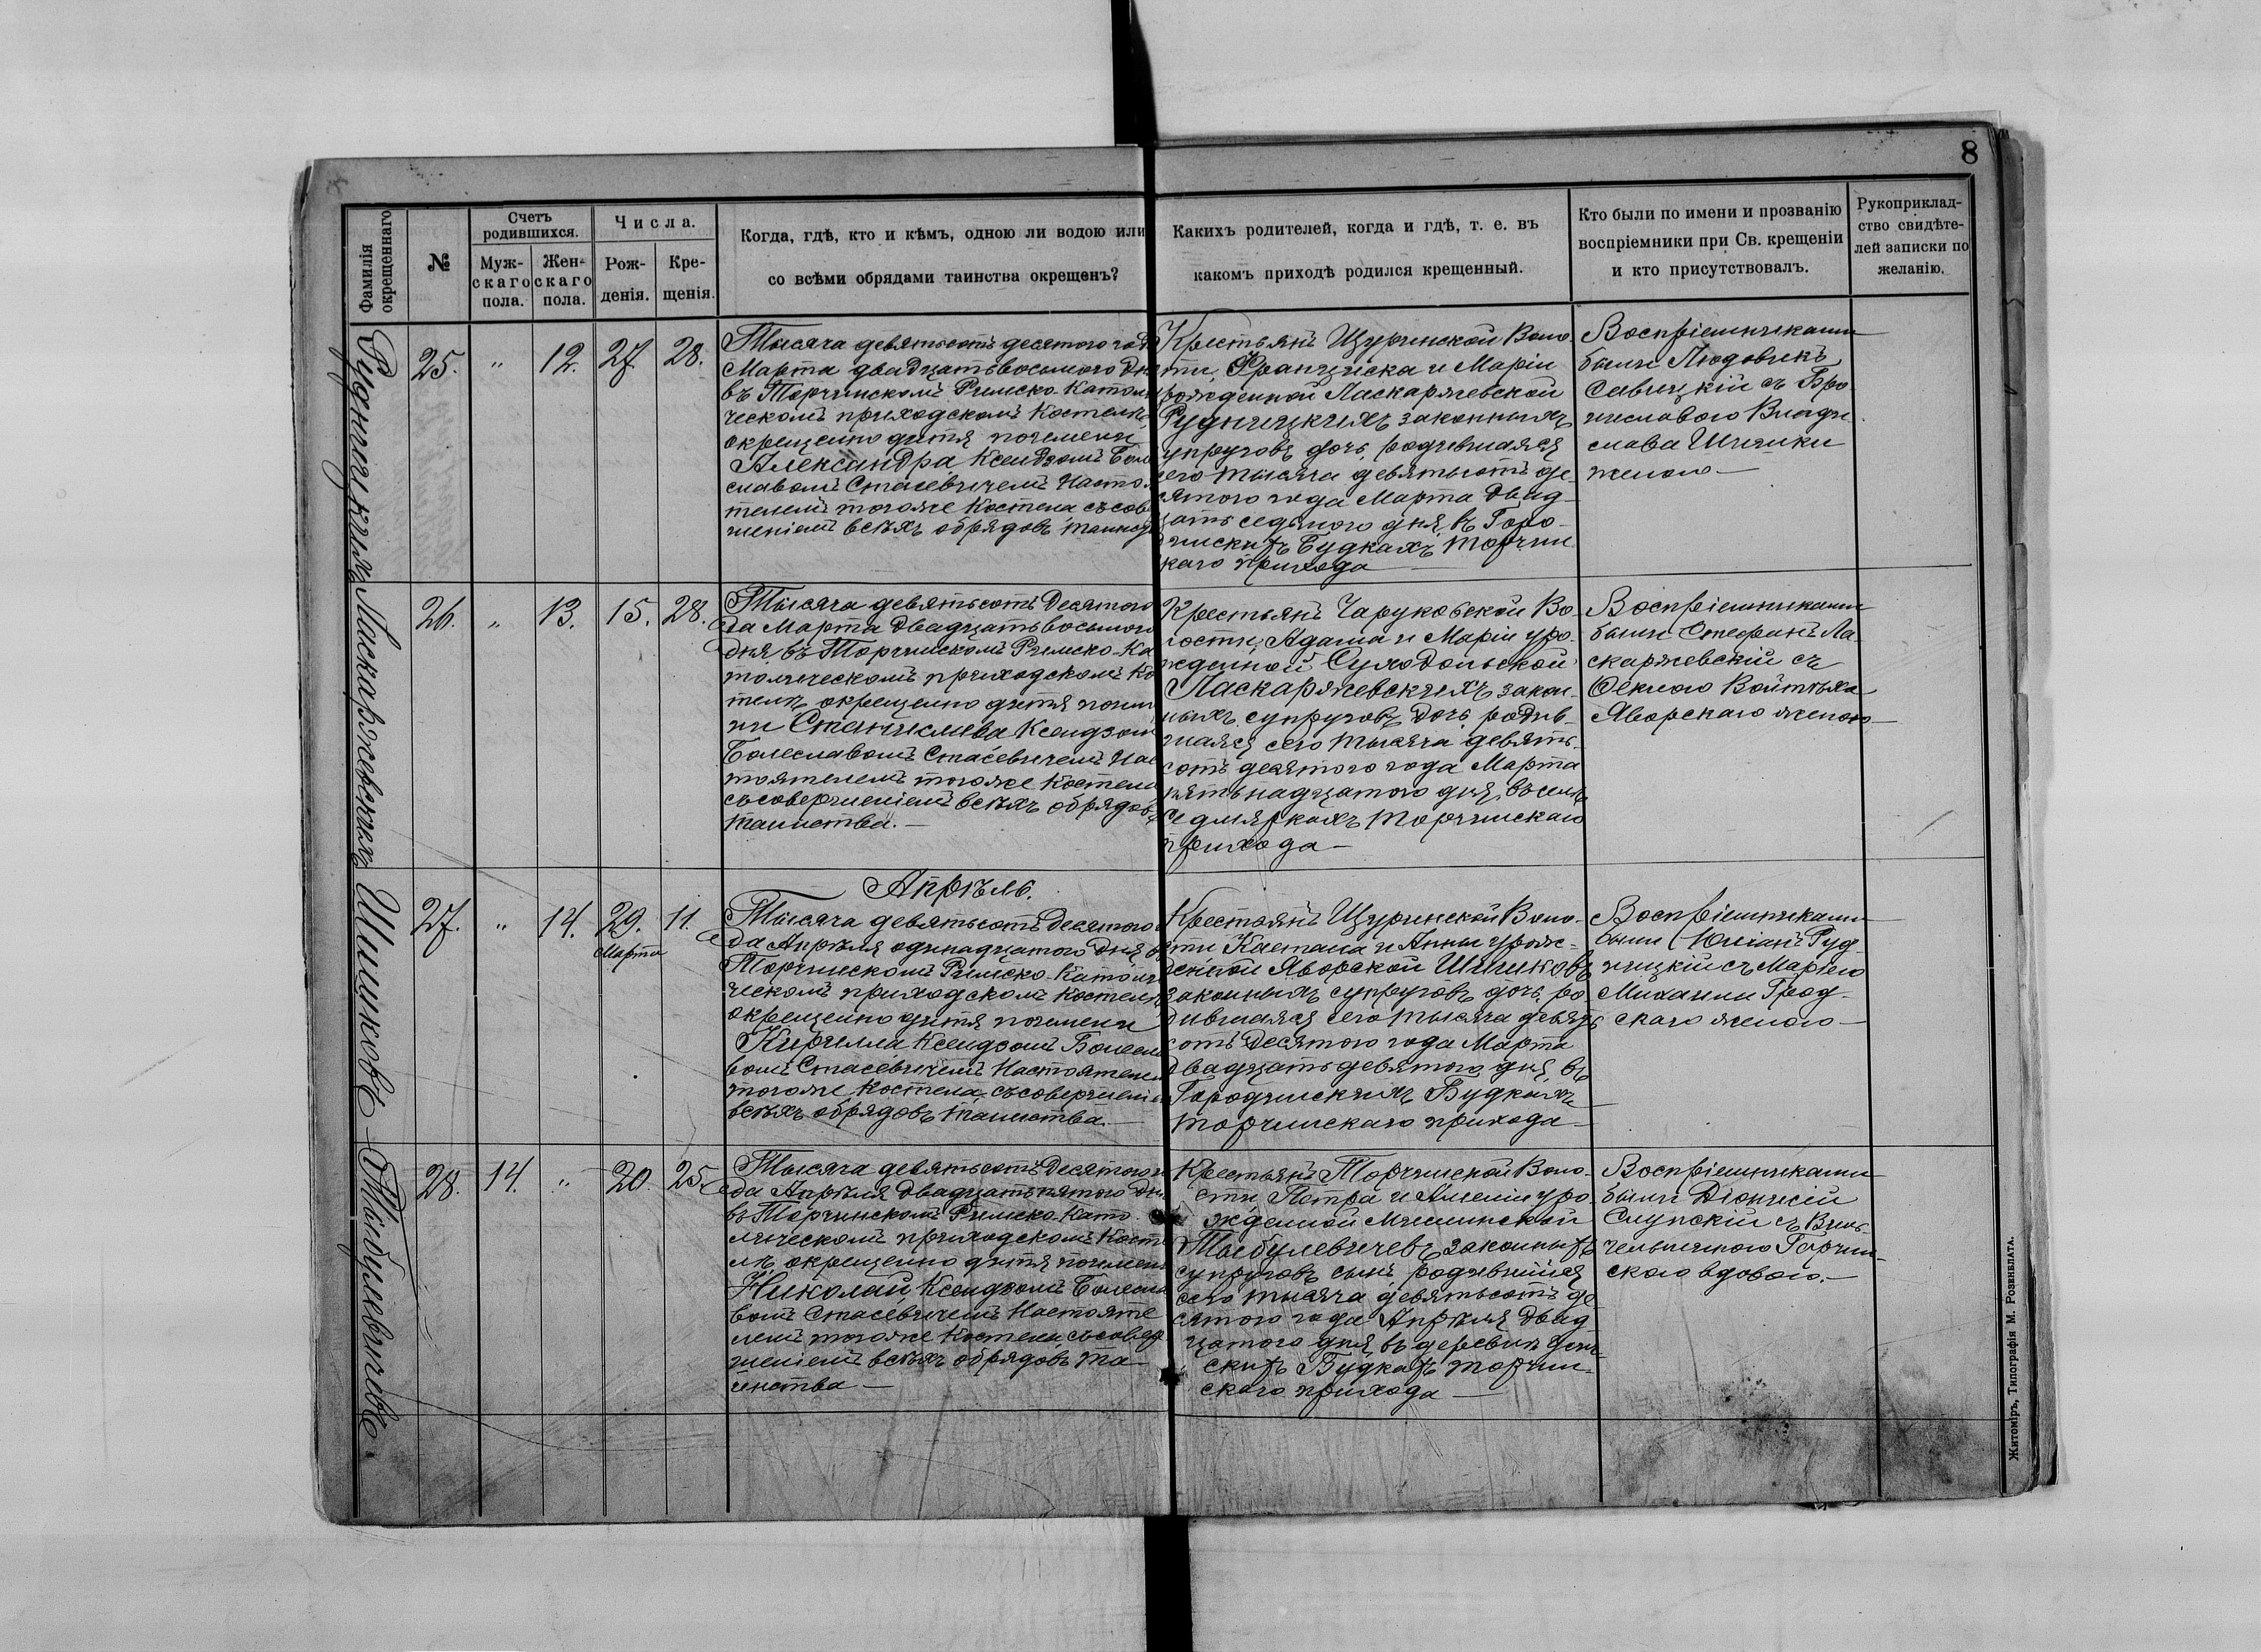 8
Фамилія окрещеннаго
№
Счетъ родившихся.
Муж-скаго пола.
Жен-скаго пола.
Числа.
Рож-денія.
Кре-щенія.
Когда, гдѣ, кто и кѣмъ, одною ли водою или
со всѣми обрядами таинства окрещенъ?
Каихъ родителей, когда и гдѣ, т. е. въ
какомъ приходѣ родился крещенный.
Кто были по имени и прозванію
воспріемники при Св. крещеніи
и кто присутствовалъ.
Рукоприклад-
ство свидѣте-
лей записки по
желанію.
Рудницкихъ
25. " 12. 27. 28.
Тысяча девятьсотъ десятого года
Марта двадцатьвосьмого дня
въ Торчинскомъ Римско-Католи
ческомъ приходскомъ Костелѣ
окрещено дитя поимени
Александра, Ксендзомъ Боле
славомъ Стасевичемъ Насто
телемъ тогоже Костела съсов
шеніемъ всѣхъ обрядовъ таинст
Крестьянъ Щуринской Воло-
сти, Францишка и Маріи
рожденной Ласкаржевской
Рудницкихъ законныхъ
упруговъ дочь, родившаяся
сего тысяча девятьсотъ де-
сятого года Марта двад-
цать седьмого дня, въ Горо-
динскихъ Будкахъ Торчин
каго прихода
Воспріемниками
были Людовикъ
Савицкій съ Бро-
ниславою Влади-
слава Шишки
женою
Ласкаржевскихъ
26. " 13. 15. 28.
Тысяча девятьсотъ десятого
да Марта двадцатьвосьмого
дня, въ Торчинскомъ Римско-Ка
толическомъ приходскомъ Ко
телѣ окрещено дитя поим
ни Станислава Ксендзомъ
Болеславомъ Стасевичемъ Нас
тоятелемъ тогоже Костела
съсовершеніемъ всѣхъ обрядовъ
таинства.
Крестьянъ Чаруковской Во-
лости, Адама и Маріи уро-
жденной Суходольской
Ласкаржевскихъ закон-
ныхъ супруговъ дочь, родив-
шаяся сего тысяча девять-
сотъ десятого года Марта
пятьнадцатого дня, въ селѣ
Седмяркахъ Торчинскаго
прихода
Воспріемниками
были Стефанъ Ла-
скаржевскій съ
Феклою Войтѣха
Яворскаго женою
Шишковъ
Апрѣль.
27. " 14. 29. Марта 11.
Тысяча девятьсотъ десятого
да Апрѣля одинадцатого дня, въ
Торчинскомъ Римско-Католи
ческомъ приходскомъ костелѣ
окрещено дитя поимени
Кирилла Ксендзомъ Болесла
вомъ Стасевичемъ Настоятелем
тогоже Костела, съсовершеніе
всѣхъ обрядовъ таинства.
Крестьянъ Щуринской Воло-
сти Каетана и Анны урож-
денной Яворской Шишковъ
законныхъ супруговъ дочь, ро-
дившаяся сего тысяча девять
сотъ десятого года Марта
двадцать девятого дня, въ
Городинскихъ Будкахъ
Торчинскаго прихода
Воспріемниками
были Юліанъ Руд-
ницкій съ Маріею
Михаила Грод-
скаго женою
Тыбулевичевъ
28. 14. " 20. 25.
Тысяча девятьсотъ десятого
да Апрѣля двадцатьпятого дня
въ Торчинскомъ Римско-Като-
лическомъ приходскомъ Косте
лѣ, окрещено дитя поимени
Николай, Ксендзомъ Болесла
вомъ Стасевичемъ Настояте
лемъ тогоже Костела, съсовер
шеніемъ всѣхъ обрядовъ та-
инства
Крестьянъ Торчинской Воло-
сти, Петра и Амеліи уро
жденной
Тыбулевичевъ, законныхъ
супруговъ сынъ, родившійся
сего тысяча девятьсотъ де-
сятого года Апрѣля двад
цатого дня, въ деревнѣ
скихъ Будкахъ Торчин-
скаго прихода
Воспріемниками
были Діонисій
Слупскій съ Виль-
гельминою Горчин-
скою вдовою.
Житомiръ, Типографія М. Розенблата.